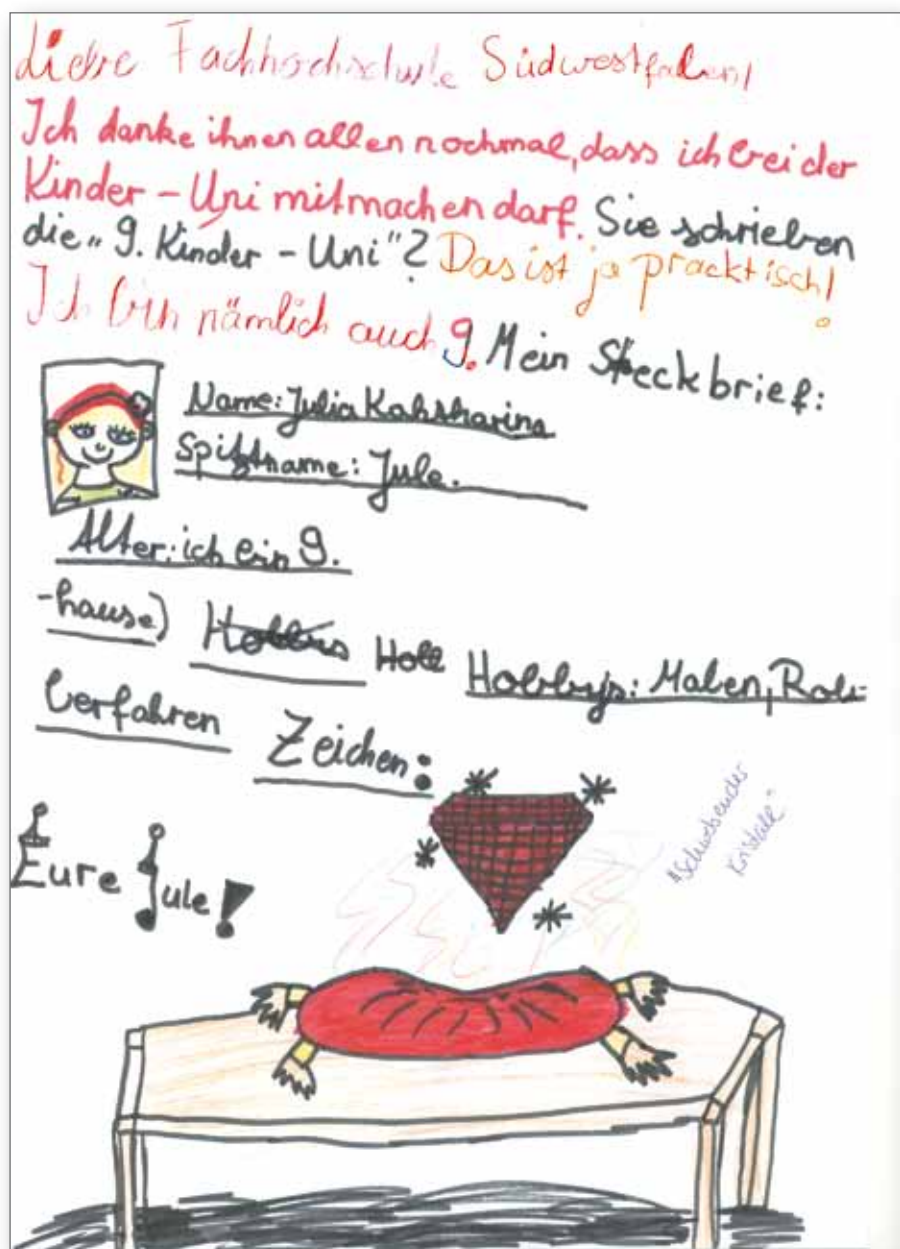 Liebe Fachhochschule Südwestfalen!
Ich danke ihnen allen nochmal, dass ich bei der
Kinder - Uni mitmachen darf. Sie schrieben
die „9. Kinder - Uni"? Das ist ja pracktisch!
Ich bin nämlich auch 9. Mein Steckbrief:
Name: Julia
Spitzname: Jule.
Alter: ich bin 9.
-hause) Hobbys: Malen, Rol-
lerfahren Zeichen:
"Schwebender
Kristall"
Eure Jule!